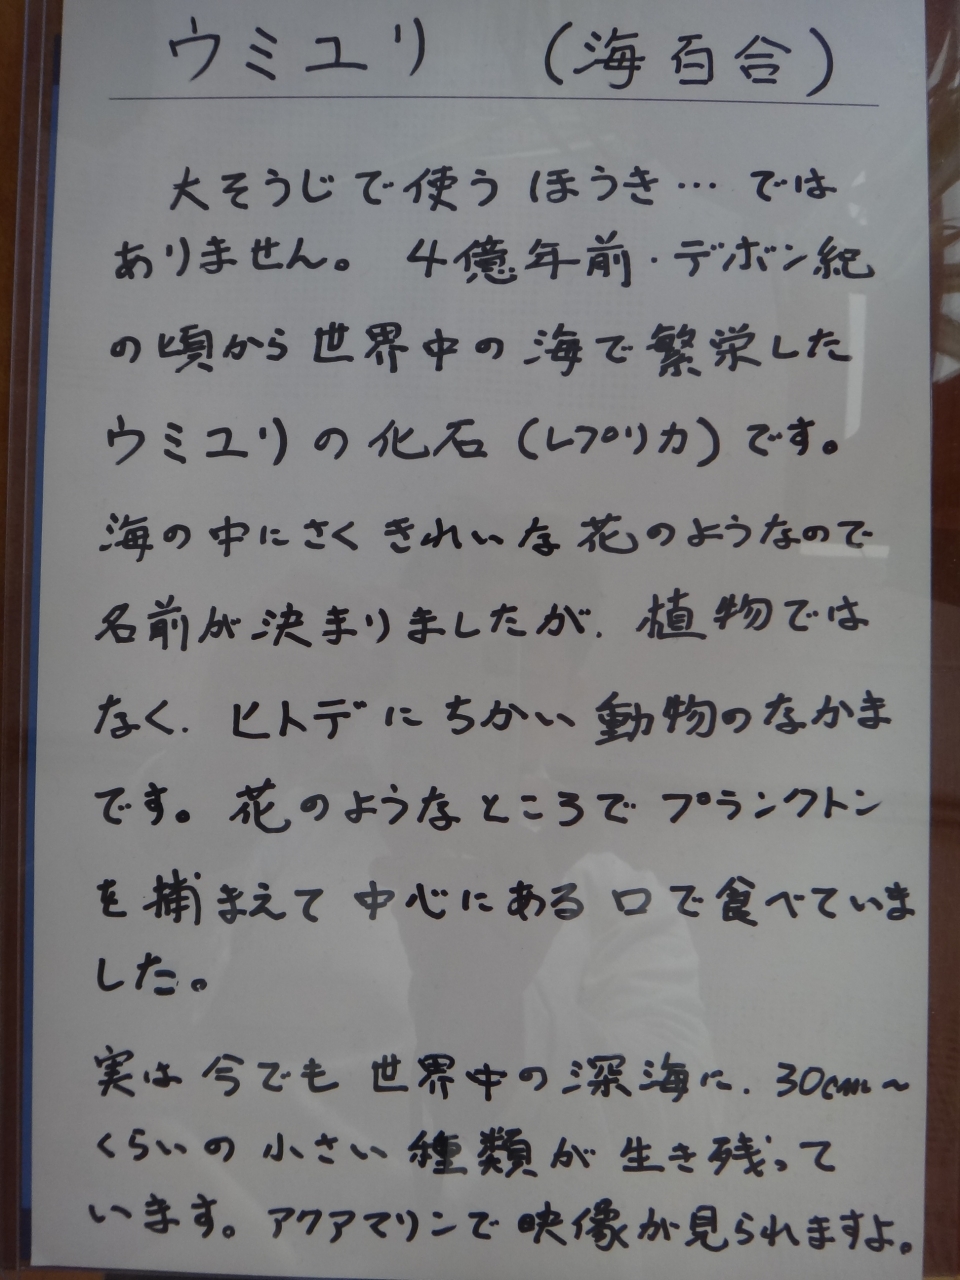 ウミユリ （海百合）
大そうじで使う ほうき… では
ありません。 4億年前・デボン紀
の頃から世界中の海で繁栄した
ウミユリの化石（レプリカ）です。
海の中にさくきれいな花のようなので
名前が決まりましたが、植物では
なく、ヒトデにちかい動物のなかま
です。花のようなところでプランクトン
を捕まえて中心にある口で食べていま
した。
実は今でも世界中の深海に、30cm～
くらいの小さい種類が生き残って
います。アクアマリンで映像が見られますよ。